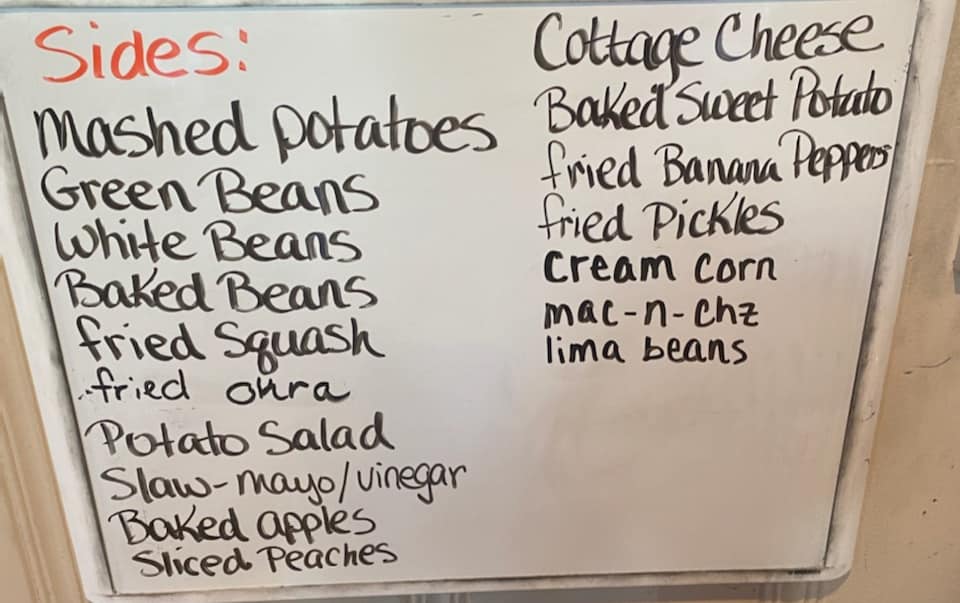 Sides:
Mashed potatoes
Green Beans
White Beans
Baked Beans
fried Squash
fried okra
Potato Salad
Slaw-mayo/vinegar
Baked apples
Sliced Peaches
Cottage Cheese
Baked Sweet Potato
fried Banana Peppers
fried Pickles
cream corn
mac-n-chz
lima beans